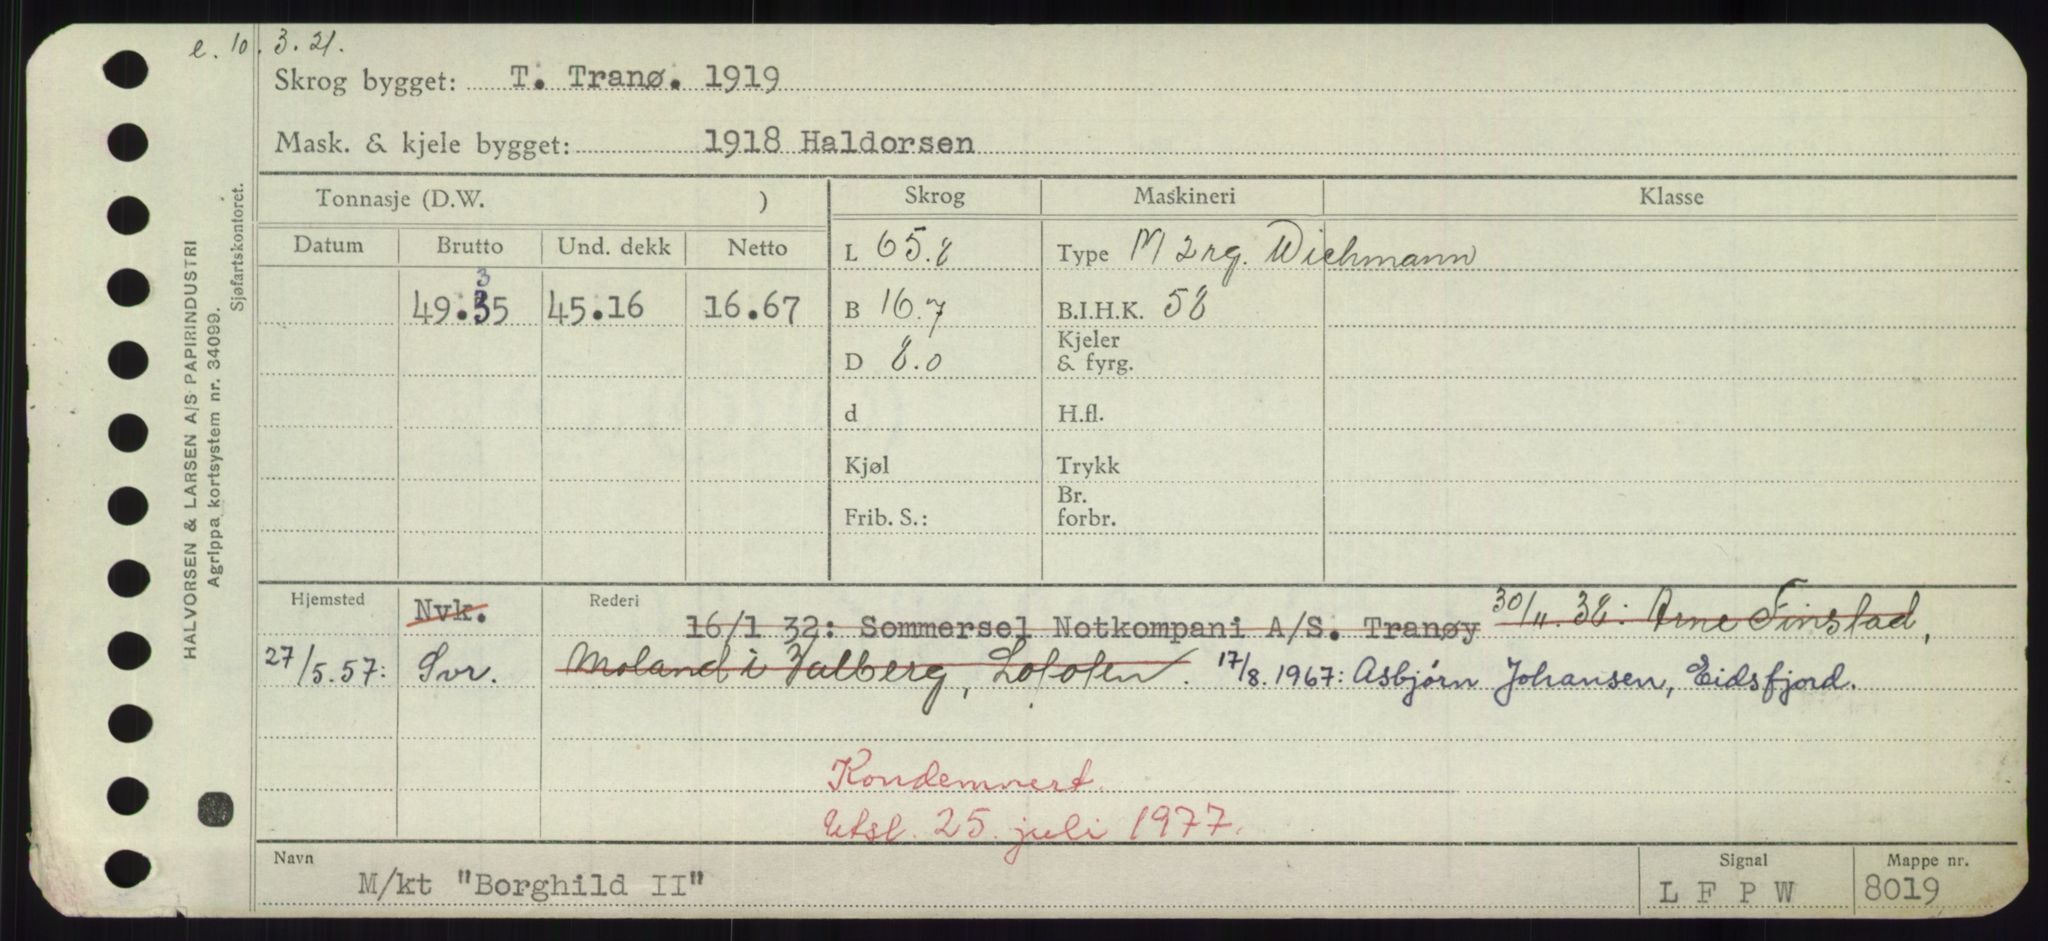 e. 10. 3. 21.
Skrog bygget: T. Tranø. 1919
Mask. & kjele bygget: 1918 Haldorsen
Tonnasje (D.W. )
Skrog
Maskineri
Klasse
Datum
Brutto
Und. dekk
Netto
3
49.35
45.16
16.67
L 65.8
B 16.7
D 8.0
d
Kjøl
Frib. S.:
Type M 2 rg. Wichmann
B.I.H.K. 58
Kjeler
& fyrg.
H.fl.
Trykk
Br.
forbr.
Hjemsted
Nvk.
Rederi
16/1 32: Sommersel Notkompani A/S. Tranøy 30/11.38: Arne Finstad,
27/5.57: Svr. Moland i Valberg, Lofoten. 17/8.1967: Asbjørn Johansen, Eidsfjord.
Kondemnert.
Utsl. 25. juli 1977.
Navn
M/kt "Borghild II"
Signal
L F P W
Mappe nr.
8019
HALVORSEN & LARSEN A/S PAPIRINDUSTRI
Agrippa kortsystem nr. 34099.
Sjøfartskontoret.